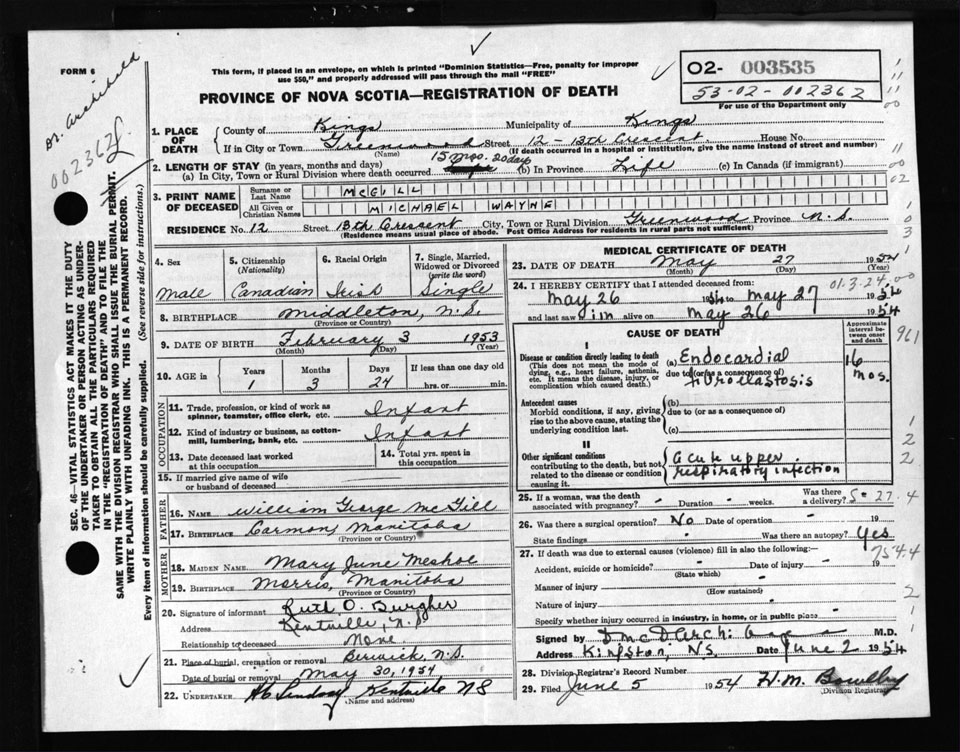 FORM 6
This form, if placed in an envelope, on which is printed "Dominion Statistics—Free, penalty for improper
use $50," and properly addressed will pass through the mail "FREE"
02- 003535
53-02-002362
For use of the Department only
PROVINCE OF NOVA SCOTIA—REGISTRATION OF DEATH
Dr. Archibald
002362
1. PLACE OF DEATH
County of Kings Municipality of Kings
If in City or Town Greenwood Street 12 - 13th Crescent House No.
(Name) (If death occurred in a hospital or institution, give the name instead of street and number)
2. LENGTH OF STAY (in years, months and days) 15 mos. 20 days
(a) In City, Town or Rural Division where death occurred (b) In Province Life (c) In Canada (if immigrant)
3. PRINT NAME OF DECEASED
Surname or Last Name McGILL
All Given or Christian Names MICHAEL WAYNE
RESIDENCE No. 12 Street 13th Crescent City, Town or Rural Division Greenwood Province N.S.
(Residence means usual place of abode. Post Office Address for residents in rural parts not sufficient)
4. Sex Male
5. Citizenship (Nationality) Canadian
6. Racial Origin Irish
7. Single, Married, Widowed or Divorced (write the word) Single
8. BIRTHPLACE Middleton, N.S.
(Province or Country)
9. DATE OF BIRTH February 3 1953
(Month) (Day) (Year)
10. AGE in Years Months Days If less than one day old
1 3 24 hrs. or min.
OCCUPATION
11. Trade, profession, or kind of work as spinner, teamster, office clerk, etc. Infant
12. Kind of industry or business, as cotton-mill, lumbering, bank, etc. Infant
13. Date deceased last worked at this occupation
14. Total yrs. spent in this occupation
15. If married give name of wife or husband of deceased
FATHER
16. NAME William George McGill
17. BIRTHPLACE Carmon, Manitoba
(Province or Country)
MOTHER
18. MAIDEN NAME Mary June
19. BIRTHPLACE Morris, Manitoba
(Province or Country)
20. Signature of informant Ruth O. Burgher
Address Kentville, N.S.
Relationship to deceased None
21. Place of burial, cremation or removal Berwick, N.S.
Date of burial or removal May 30, 1954
22. UNDERTAKER Lindsay Kentville NS
(Name and address)
MEDICAL CERTIFICATE OF DEATH
23. DATE OF DEATH May 27 1954
(Month) (Day) (Year)
24. I HEREBY CERTIFY that I attended deceased from: 01.3.24
May 26 1954 to May 27 1954
and last saw him alive on May 26 1954
CAUSE OF DEATH
Approximate interval between onset and death
I
Disease or condition directly leading to death (This does not mean the mode of dying, e.g., heart failure, asthenia, etc. It means the disease, injury, or complication which caused death.)
(a) Endocardial
due to (or as a consequence of) fibroelastosis
16 mos.
961
Antecedent causes
Morbid conditions, if any, giving rise to the above cause, stating the underlying condition last.
(b)
due to (or as a consequence of)
(c)
II
Other significant conditions contributing to the death, but not related to the disease or condition causing it.
acute upper
respiratory infection
25. If a woman, was the death associated with pregnancy? Duration weeks. Was there a delivery?
5-27.4
26. Was there a surgical operation? No Date of operation 19
State findings Was there an autopsy? Yes
754.4
27. If death was due to external causes (violence) fill in also the following:—
Accident, suicide or homicide? Date of injury 19
(State which)
Manner of injury
(How sustained)
Nature of injury
Specify whether injury occurred in industry, in home, or in public place
Signed by M.D.
Address Kingston, N.S. Date June 2 1954
28. Division Registrar's Record Number
29. Filed June 5 1954 H.M. Bowlby
(Division Registrar)
SEC. 46—VITAL STATISTICS ACT MAKES IT THE DUTY
OF THE UNDERTAKER OR PERSON ACTING AS UNDER-
TAKER TO OBTAIN ALL THE PARTICULARS REQUIRED
IN THE "REGISTRATION OF DEATH" AND TO FILE THE
SAME WITH THE DIVISION REGISTRAR WHO SHALL ISSUE THE BURIAL PERMIT.
WRITE PLAINLY WITH UNFADING INK. THIS IS A PERMANENT RECORD.
Every item of information should be carefully supplied. (See reverse side for instructions.)